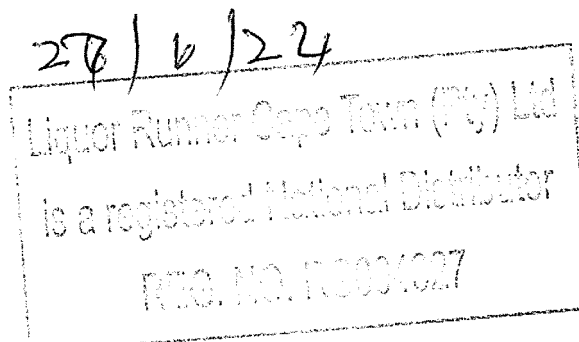 /22
Liquor Runner Cape Town (Pty) Ltd
is a registered National Distributor
REG. NO.